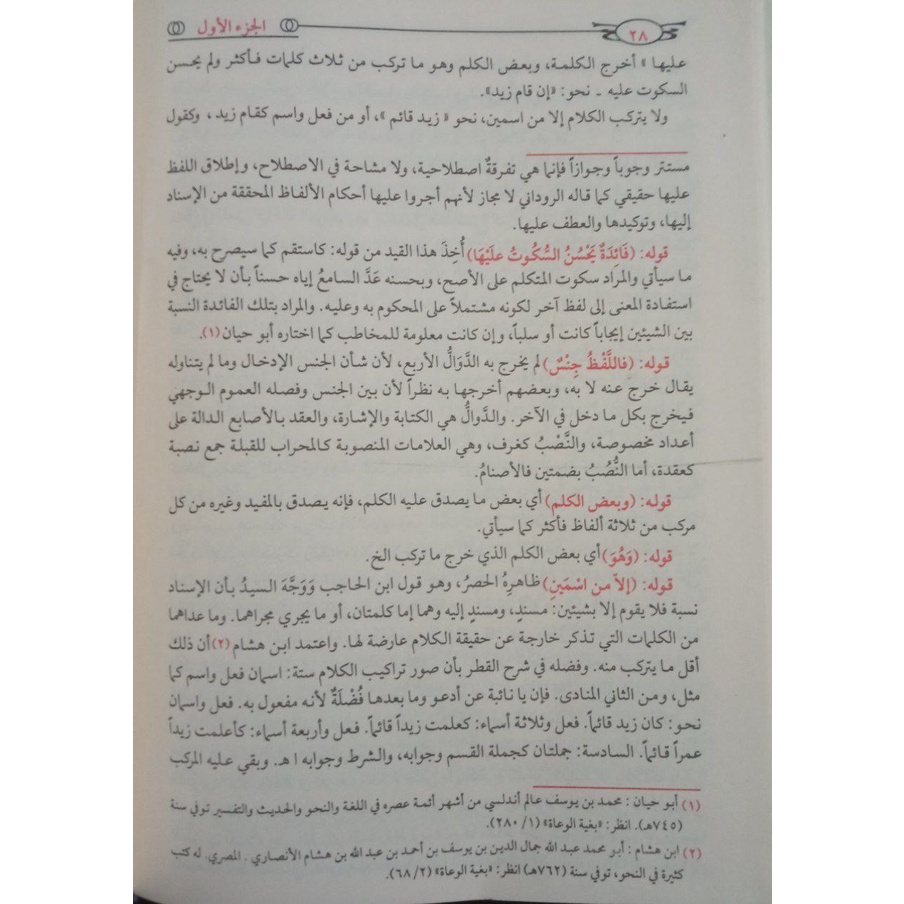 ٢٨
الجزء الأول
عليها » أخرج الكلمة، وبعض الكلم وهو ما تركب من ثلاث كلمات فأكثر ولم يحسن
السكوت عليه - نحو: «إن قام زيد».
ولا يتركب الكلام إلا من اسمين، نحو « زيد قائم »، أو من فعل واسم كقام زيد ، وكقول
مستتر وجوباً وجوازاً فإنما هي تفرقةٌ اصطلاحية، ولا مشاحة في الاصطلاح، وإطلاق اللفظ
عليها حقيقي كما قاله الروداني لا مجاز لأنهم أجروا عليها أحكام الألفاظ المحققة من الإسناد
إليها، وتوكيدها والعطف عليها.
قوله: (فَائدَةً يَحْسُنُ السُّكُوتُ عَلَيْهَا) أُخِذَ هذا القيد من قوله: كاستقم كما سيصرح به، وفيه
ما سيأتي والمراد سكوت المتكلم على الأصح، وبحسنه عَدَّ السامعُ إياه حسناً بأن لا يحتاج في
استفادة المعنى إلى لفظ آخر لكونه مشتملاً على المحكوم به وعليه. والمراد بتلك الفائدة النسبة
بين الشيئين إيجاباً كانت أو سلباً، وإن كانت معلومة للمخاطب كما اختاره أبو حيان (١).
قوله: (فاللَّفْظُ جِنْسٌ) لم يخرج به الدَّوَالُّ الأربع، لأن شأن الجنس الإدخال وما لم يتناوله
يقال خرج عنه لا به، وبعضهم أخرجها به نظراً لأن بين الجنس وفصله العموم الوجهي
فيخرج بكل ما دخل في الآخر. والدَّوالُّ هي الكتابة والإشارة، والعقد بالأصابع الدالة على
أعداد مخصوصة، والنَّصْبُ كغرف، وهي العلامات المنصوبة كالمحراب للقبلة جمع نصبة
كعقدة، أما النُّصُبُ بضمتين فالأصنامُ.
قوله: (وبعض الكلم) أي بعض ما يصدق عليه الكلم، فإنه يصدق بالمفيد وغيره من كل
مركب من ثلاثة ألفاظ فأكثر كما سيأتي.
قوله: (وَهُوَ) أي بعض الكلم الذي خرج ما تركب الخ.
قوله: (إلاّ من اسْمَينِ) ظاهرِهُ الحصرُ، وهو قول ابن الحاجب وَوَجَّهَ السيدُ بأن الإسناد
نسبة فلا يقوم إلا بشيئين: مسندٍ، ومسندٍ إليه وهما إما كلمتان، أو ما يجري مجراهما. وما عداهما
من الكلمات التي تذكر خارجة عن حقيقة الكلام عارضة لها. واعتمد ابن هشام (٢) أن ذلك
أقل ما يتركب منه. وفضله في شرح القطر بأن صور تراكيب الكلام ستة: اسمان فعل واسم كما
مثل، ومن الثاني المنادى. فإن يا نائبة عن أدعو وما بعدها فُضْلَةٌ لأنه مفعول به. فعل واسمان
نحو: كان زيد قائماً. فعل وثلاثة أسماء: كعلمت زيداً قائماً. فعل وأربعة أسماء: كأعلمت زيداً
عمراً قائماً. السادسة: جملتان كجملة القسم وجوابه، والشرط وجوابه ا هـ. وبقي عليه المركب
(١) أبو حيان : محمد بن يوسف عالم أندلسي من أشهر أئمة عصره في اللغة والنحو والحديث والتفسير توفي سنة
(٧٤٥هـ). انظر: «بغية الوعاة» (١/ ٢٨٠).
(٢) ابن هشام : أبو محمد عبد الله جمال الدين بن يوسف بن أحمد بن عبد الله بن هشام الأنصاري . المصري. له كتب
كثيرة في النحو، توفي سنة (٧٦٢هـ) انظر: «بغية الوعاة» (٢/ ٦٨).